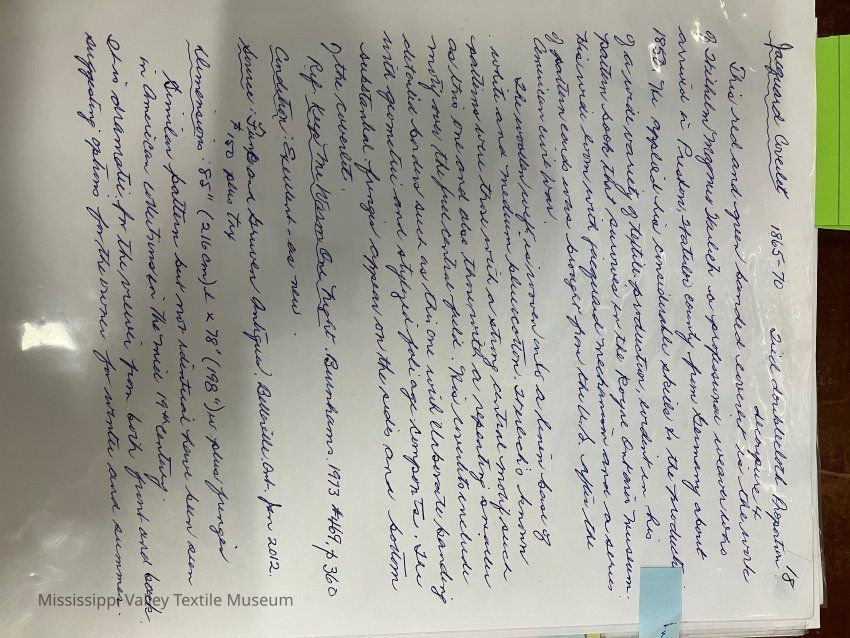 Jaquard Coverlet 1865-70 Preston 18
This red and green banded coverlet is the work
of Wilhelm Magnus Werlich a professional weaver who
arrived in Preston, Waterloo county from Germany about
1850. He applied his considerable skills to the production
of a wide variety of textile production, evident in his
pattern book that survives in the Royal Ontario Museum.
His wide loom with jacquard mechanism and a series
of pattern cards was brought from the U.S. after the
American civil war.
The woolen weft is woven into a linen base of
white and medium blue cotton threads. Known
patterns were those with a strong central motif such
as this one and also those with a repeating smaller
motif over the full central field. His coverlets include
detailed borders such as this one with elaborate banding
with geometric and stylized foliage components. The
substantial fringes appear on the sides and bottom
of the coverlet.
Ref. Keep Me Warm One Night. Burnhams 1973 #469, p 360
Condition: Excellent - as new.
Source: Antiques, Belleville Ont. Jan 2012.
plus tax
Dimensions: 85" (216 cm) L x 78" (198") w plus fringes
Similar pattern but not identical have been seen
in American collections in the mid 19th century.
It is dramatic for the viewer from both front and back
suggesting options for the owner for winter and summer.
Mississippi Valley Textile Museum